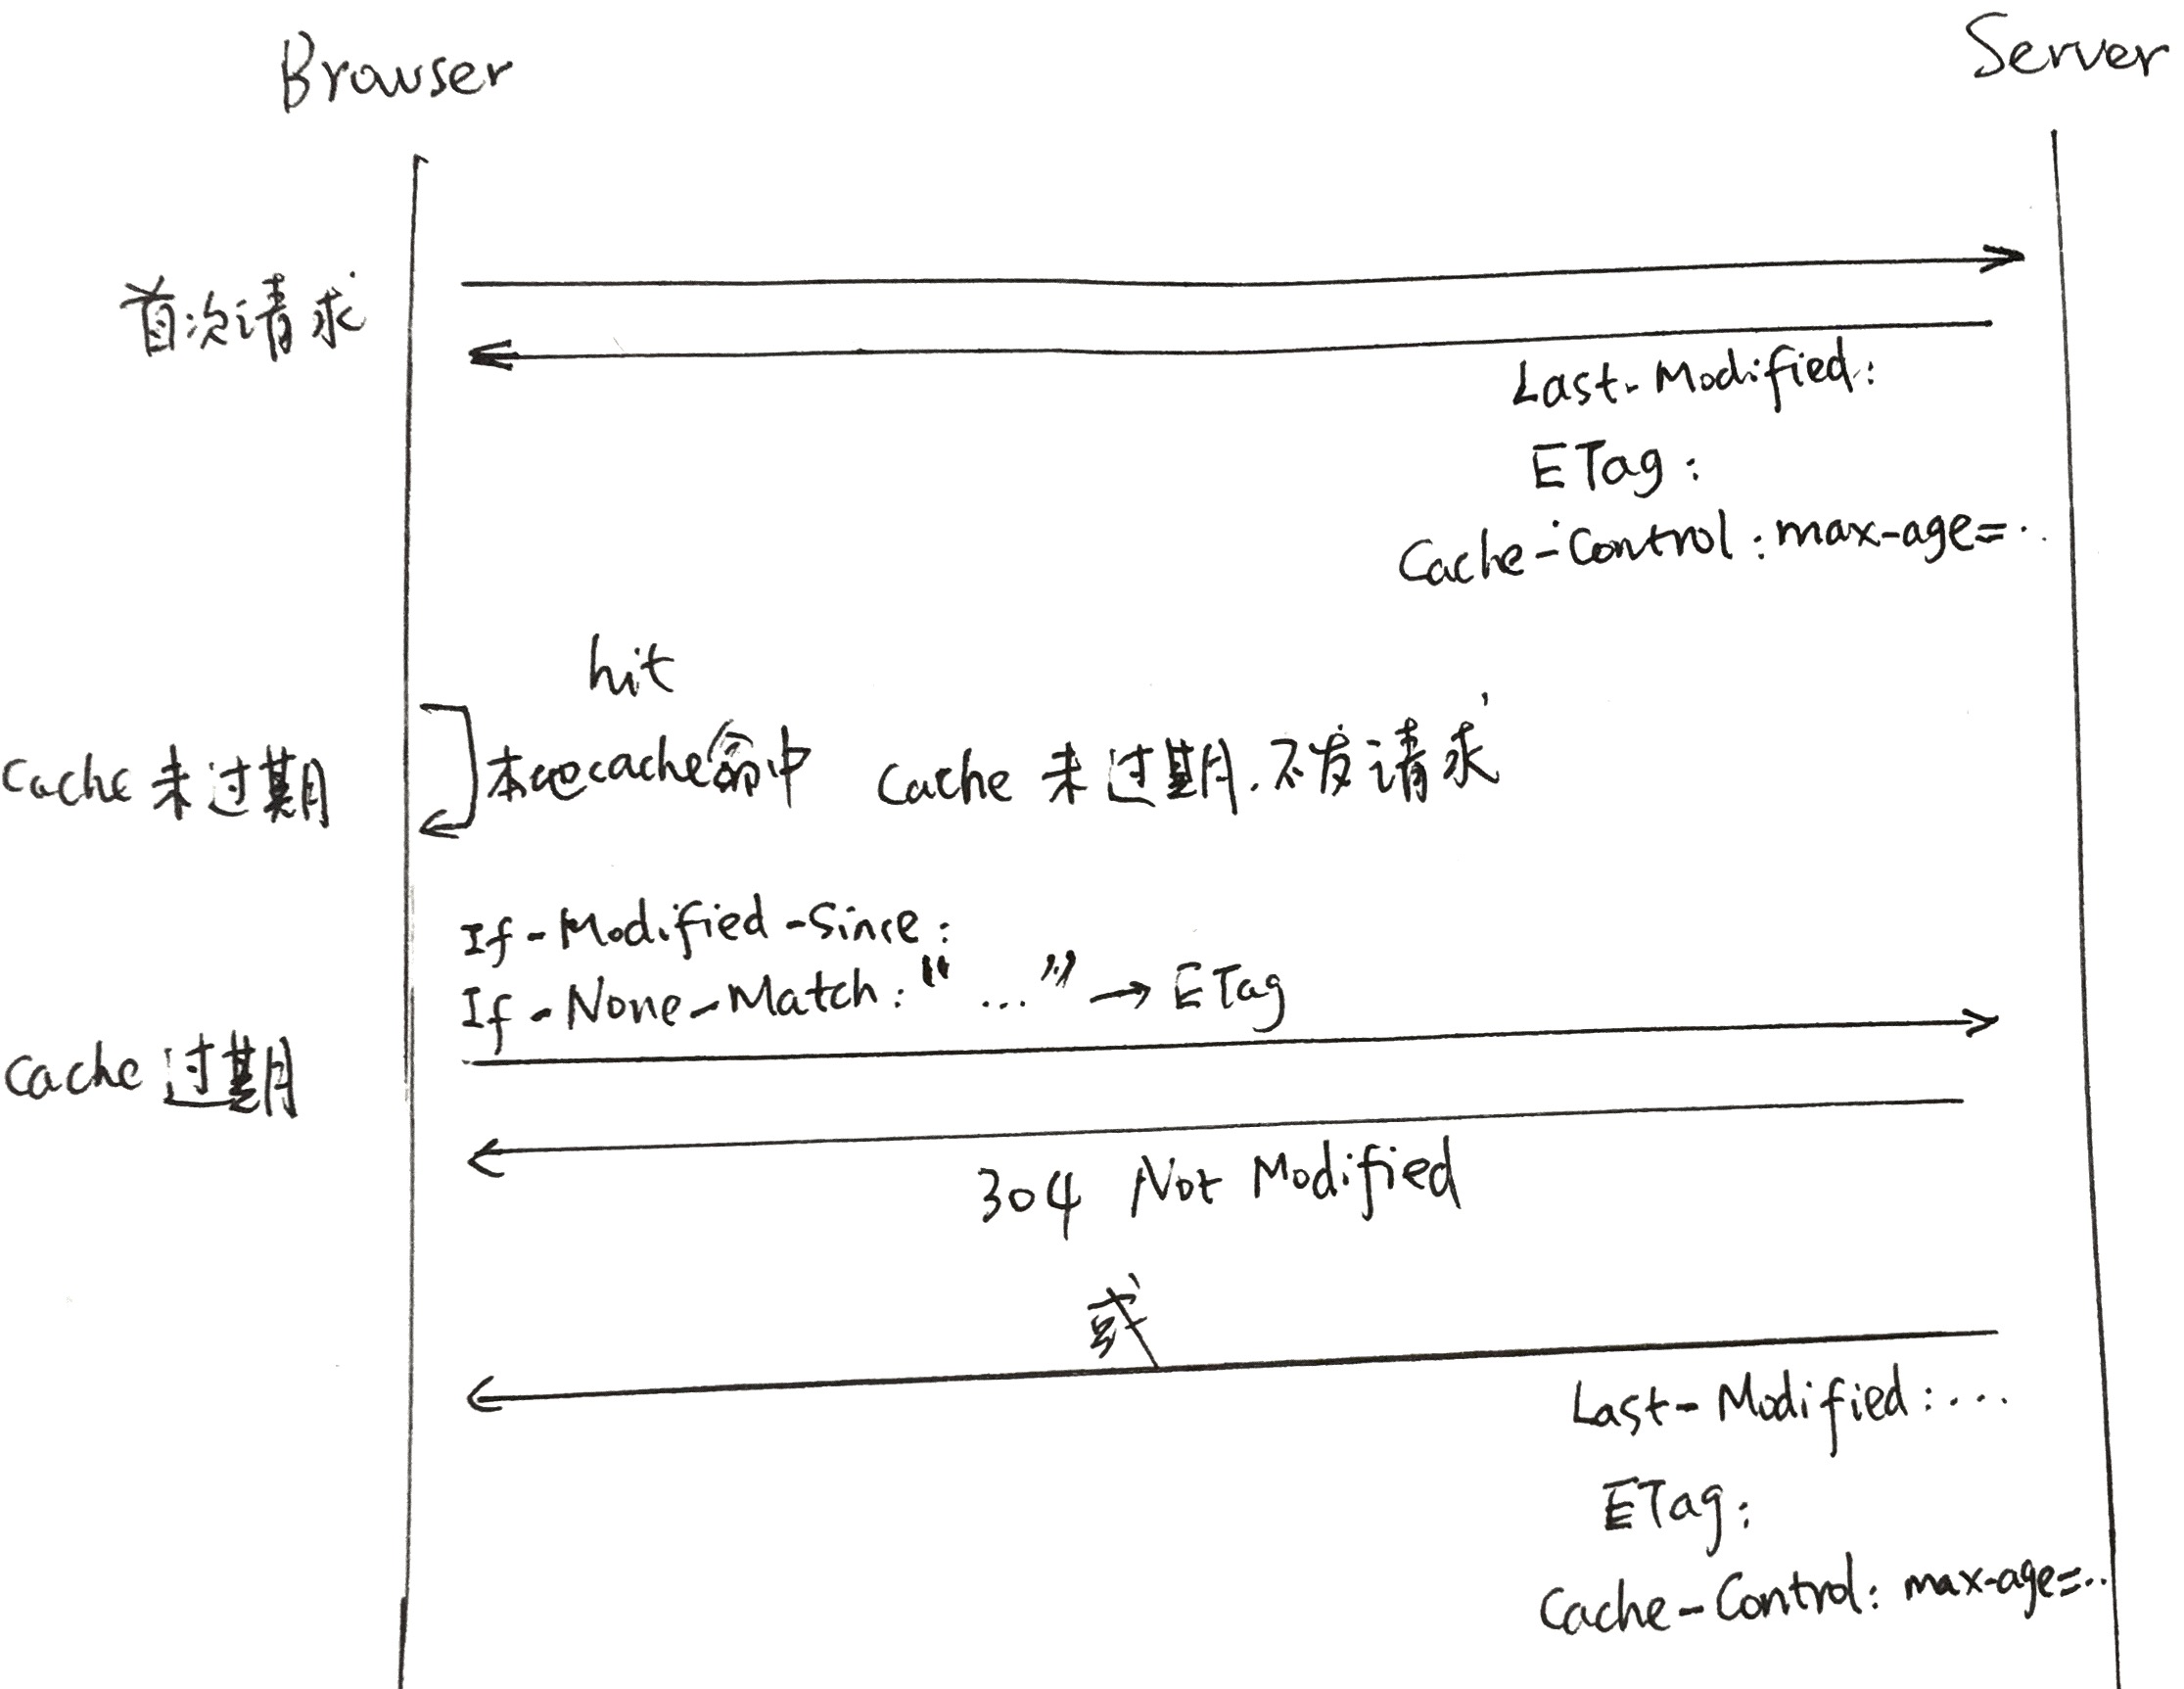 Browser
Server
首次请求
Last-Modified:
ETag:
Cache-Control: max-age=..
hit
Cache 未过期
本地cache命中
Cache 未过期.不发请求
If-Modified-Since:
If-None-Match: "..." → ETag
Cache 过期
304 Not Modified
或
Last-Modified: ...
ETag:
Cache-Control: max-age=..